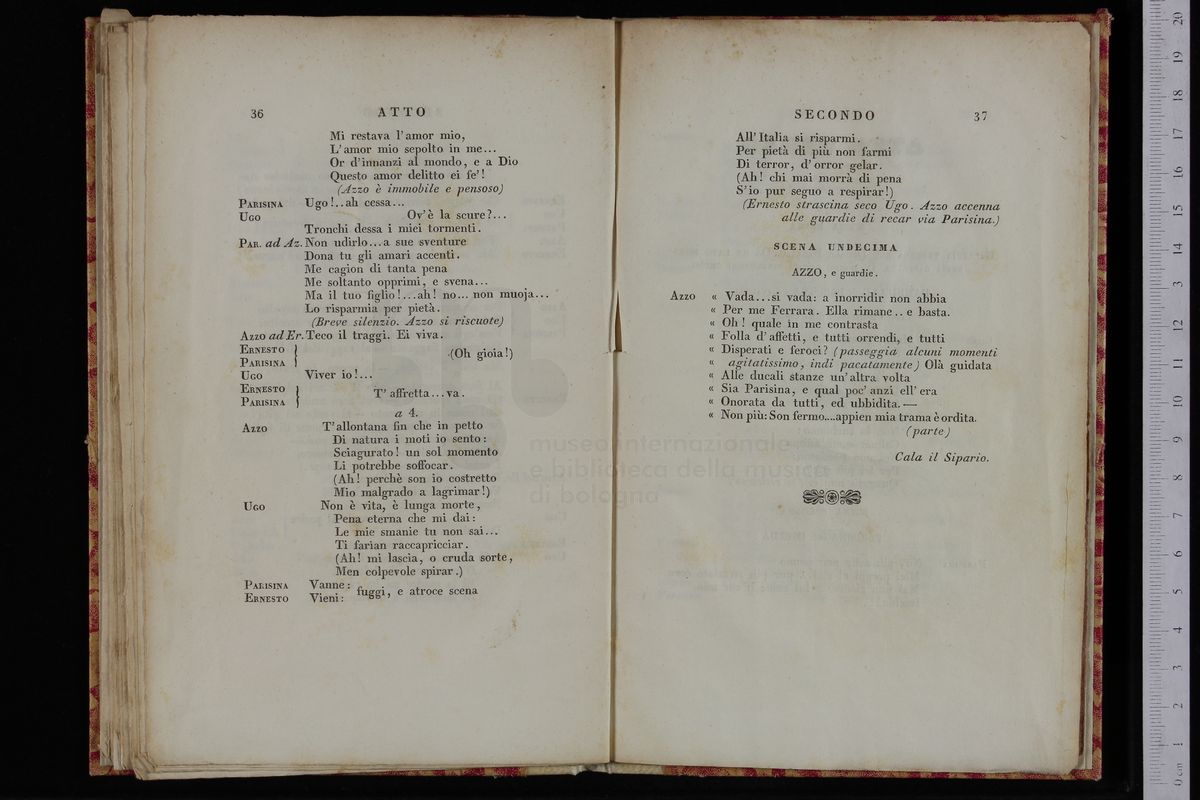 36 ATTO
Mi restava l'amor mio,
L'amor mio sepolto in me...
Or d'innanzi al mondo, e a Dio
Questo amor delitto ei fe'!
(Azzo è immobile e pensoso)
PARISINA Ugo!..ah cessa...
UGO Ov'è la scure?...
Tronchi dessa i miei tormenti.
PAR. ad Az. Non udirlo...a sue sventure
Dona tu gli amari accenti.
Me cagion di tanta pena
Me soltanto opprimi, e svena...
Ma il tuo figlio!...ah! no... non muoja...
Lo risparmia per pietà.
(Breve silenzio. Azzo si riscuote)
AZZO ad Er. Teco il traggi. Ei viva.
ERNESTO }
PARISINA } (Oh gioia!)
UGO Viver io!...
ERNESTO }
PARISINA } T' affretta...va.
a 4.
AZZO T'allontana fin che in petto
Di natura i moti io sento:
Sciagurato! un sol momento
Li potrebbe soffocar.
(Ah! perchè son io costretto
Mio malgrado a lagrimar!)
UGO Non è vita, è lunga morte,
Pena eterna che mi dai:
Le mie smanie tu non sai...
Ti farian raccapricciar.
(Ah! mi lascia, o cruda sorte,
Men colpevole spirar.)
PARISINA Vanne: fuggi, e atroce scena
ERNESTO Vieni:
SECONDO 37
All'Italia si risparmi.
Per pietà di più non farmi
Di terror, d'orror gelar.
(Ah! chi mai morrà di pena
S'io pur seguo a respirar!)
(Ernesto strascina seco Ugo. Azzo accenna
alle guardie di recar via Parisina.)
SCENA UNDECIMA
AZZO, e guardie.
AZZO « Vada...si vada: a inorridir non abbia
« Per me Ferrara. Ella rimane.. e basta.
« Oh! quale in me contrasta
« Folla d'affetti, e tutti orrendi, e tutti
« Disperati e feroci? (passeggia alcuni momenti
« agitatissimo, indi pacatamente) Olà guidata
« Alle ducali stanze un'altra volta
« Sia Parisina, e qual poc'anzi ell'era
« Onorata da tutti, ed ubbidita.—
« Non più: Son fermo....appien mia trama è ordita.
(parte)
Cala il Sipario.
museo internazionale
e biblioteca della musica
di bologna
0 cm 1 2 3 4 5 6 7 8 9 10 11 12 13 14 15 16 17 18 19 20